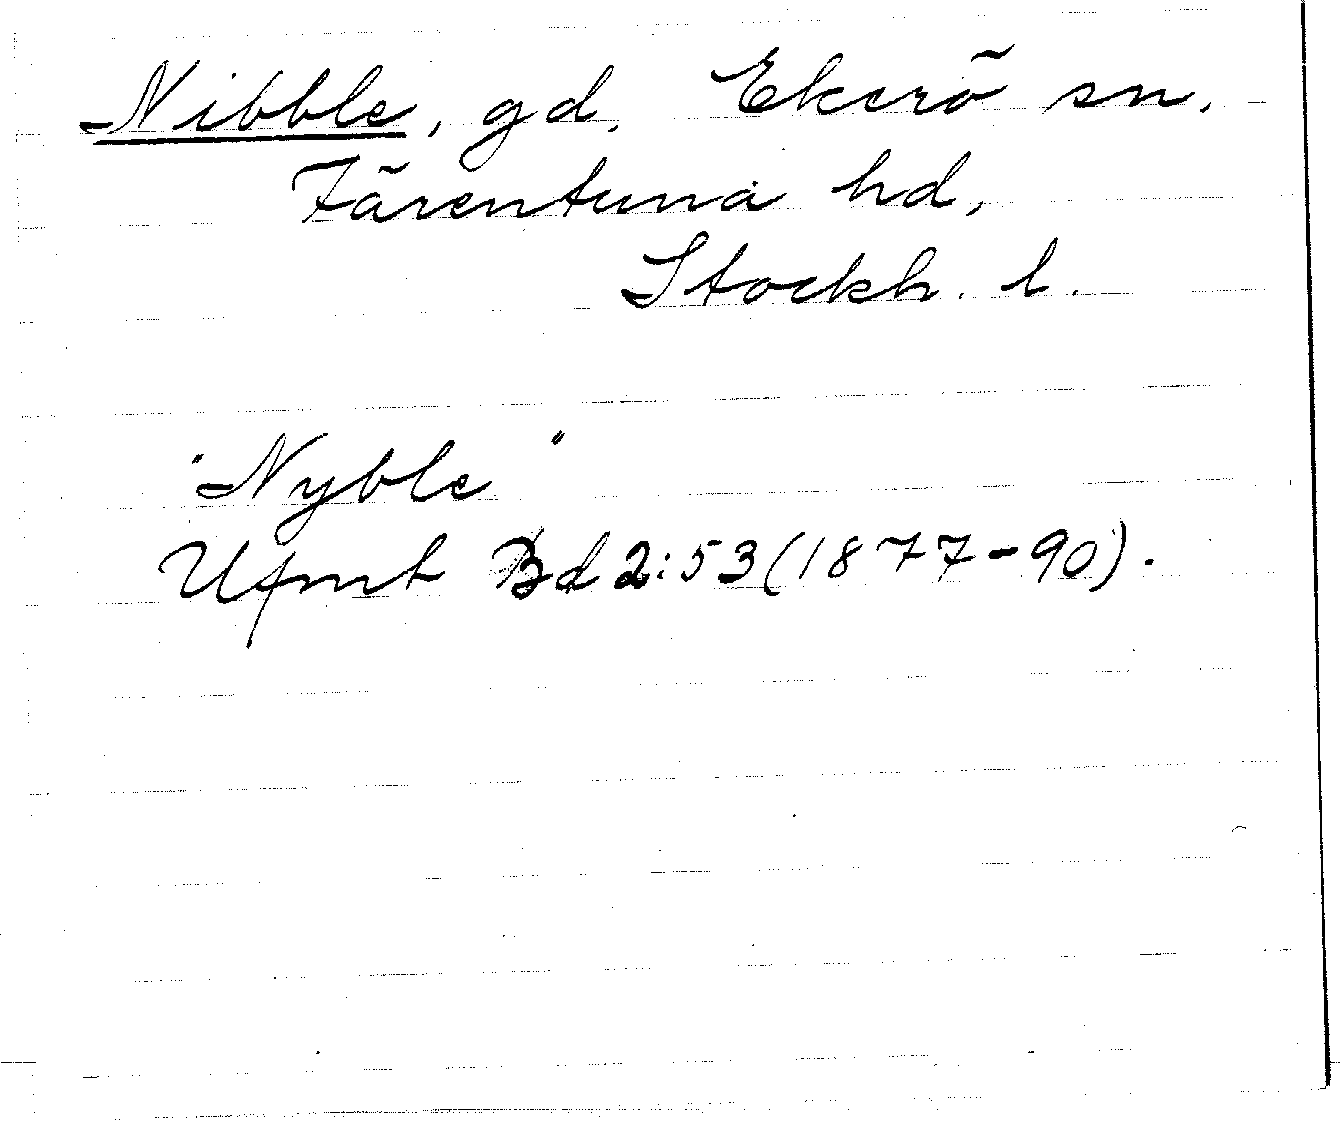 Nibble, gd, Ekerö sn,
Färentuna hd,
Stockh. l.
"Nyble"
Ufmt Bd 2:53 (1877-90).